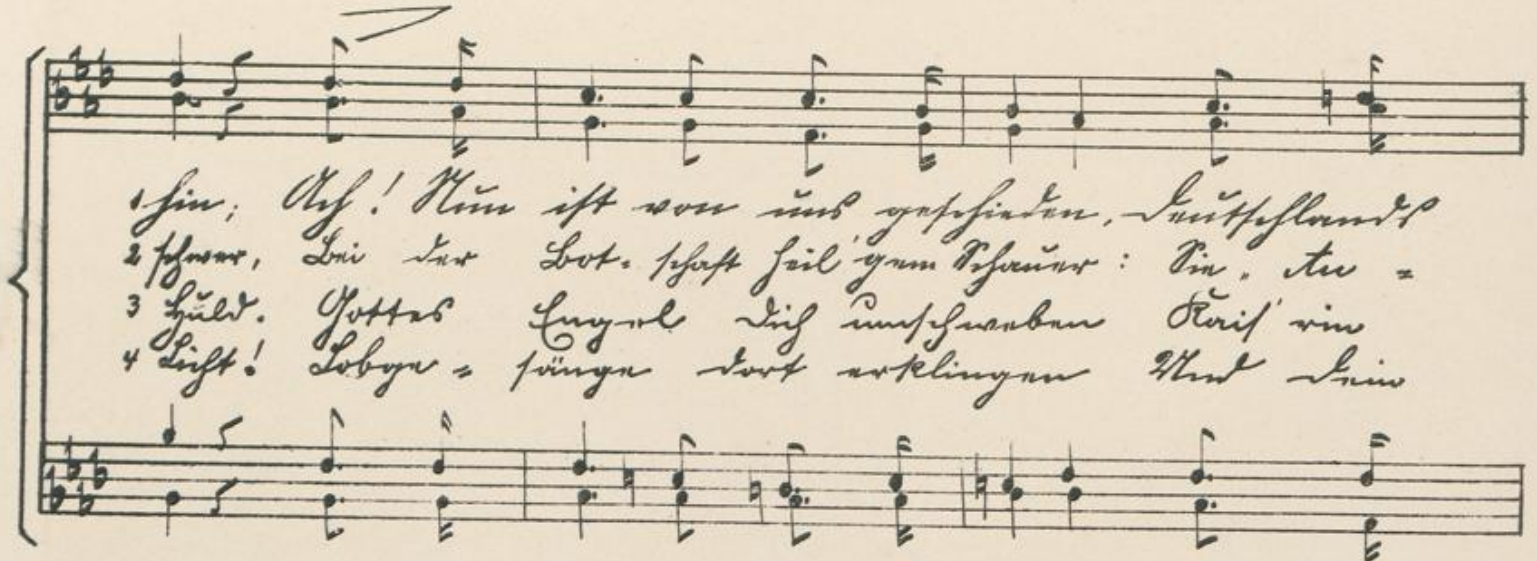 1 hin; Ach! Nun ist von uns geschieden, Deutschlands
2 schwer, Bei der Bot- schaft heil'gem Schauer: Sie, An =
3 Huld. Gottes Engel dich umschweben Kais'rin
4 Licht! Lobge = sänge dort erklingen Und dein